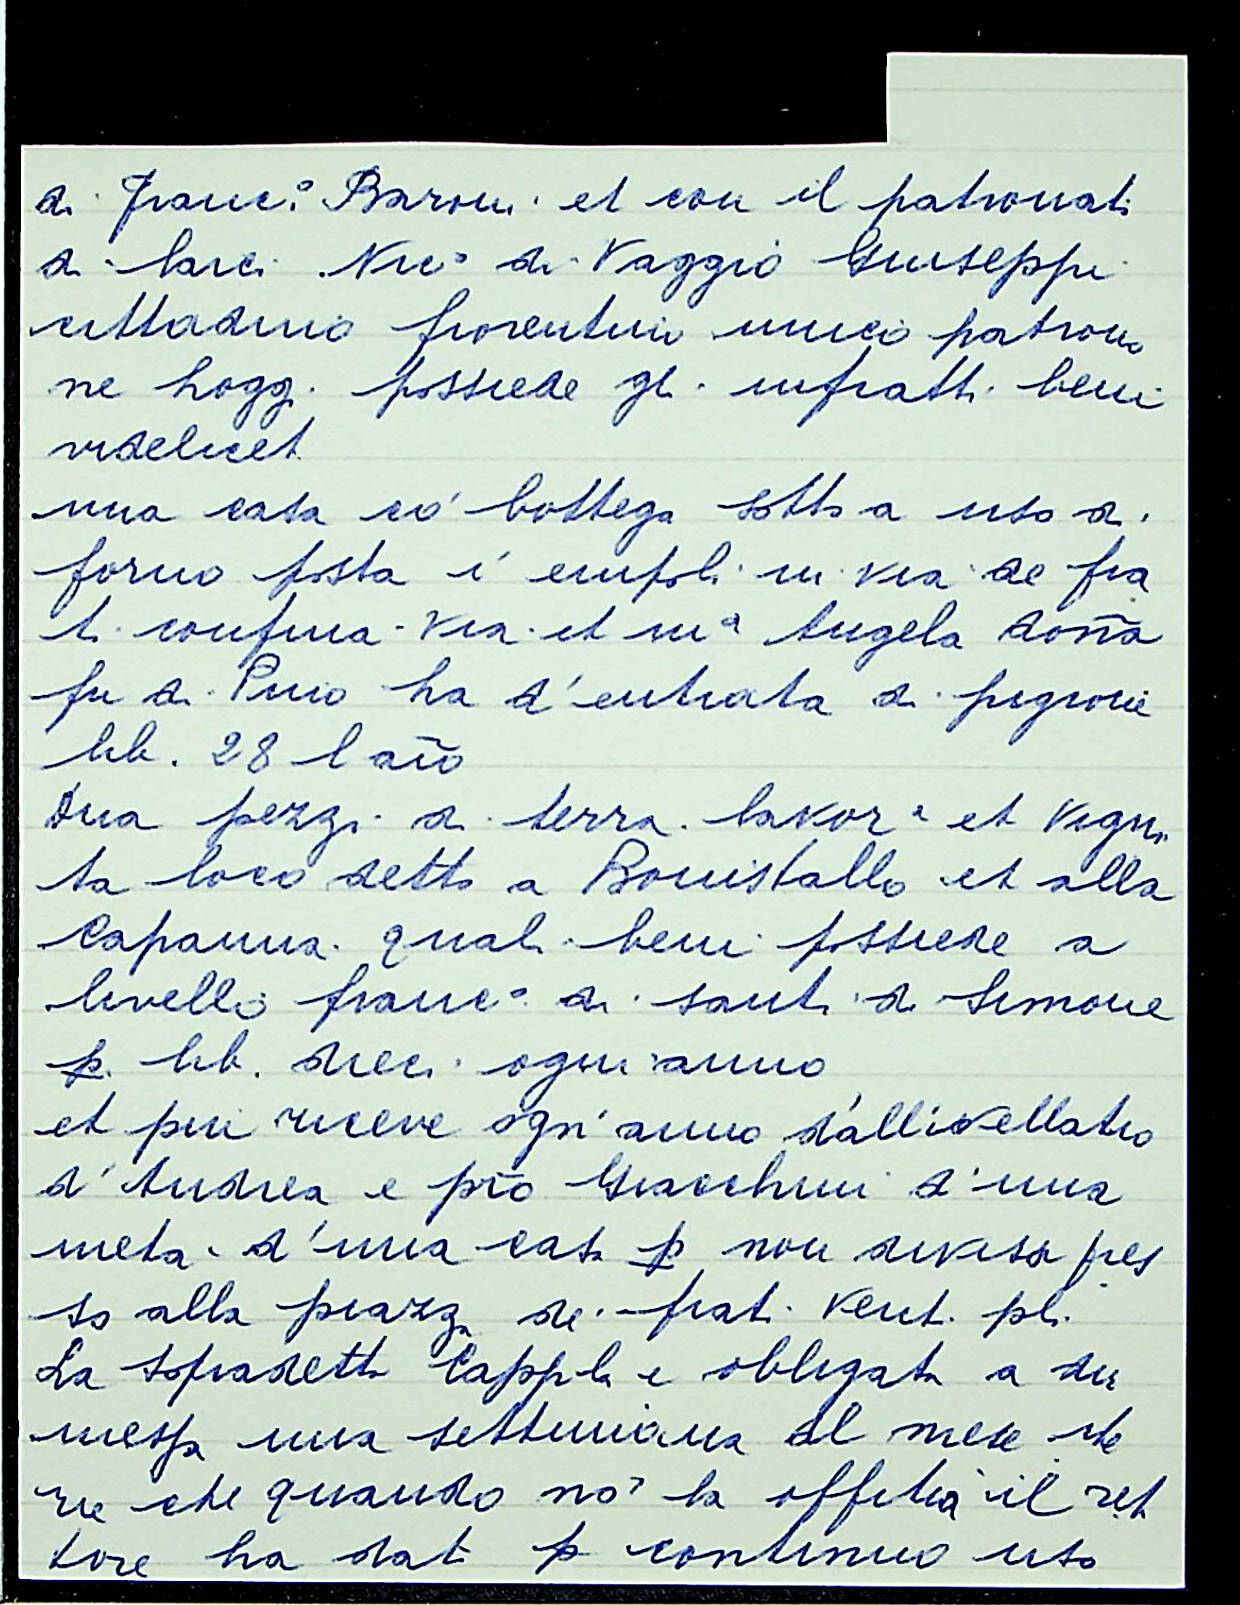 di Franc.º Baroni. et con il patronati
di Nic.º di Vaggio Giuseppi
cittadino fiorentino unico patrono
ne hogg. possiede gli infratti beni
videlicet
una casa có bottega sotto a uso di
forno posta í empoli in via de fra
ti confina via et mª Angela doña
fu di Pino ha d'entrata di pigione
lib. 28 l año
dua pezzi di terra lavorª et vigni
ta loco detto a Bonistallo et alla
Capanna. quali beni possiede a
livello francº di santi di Simone
p. lib. dieci ogni anno
et piu riceve ogn'anno d'allivellatio
d'Andrea e pro Giacchini d'una
meta d'una casa p non divisa pres
so alla piazza de frati Vent. pli.
La sopradetta Capp.la e obligata a dir
messa una settimana al mese
che quando nó la offitia il ret
tore ha dati p continuo uso